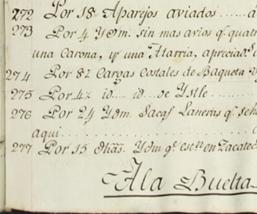 272 Por 18 Aparejos aviados
273 Por 4 Ydm. sin mas avios qe. quat
una Carona, y una Atarria, apreciado
274 Por 82 Cargas Costales de Baqueta
275 Por 42 io... id.. de Ystle
276 Por 24 Ydm. Sacas Laneras qe. se
aqui
277 Por 15 Ydm. qe. estn. en Zacatec
A la Buelta